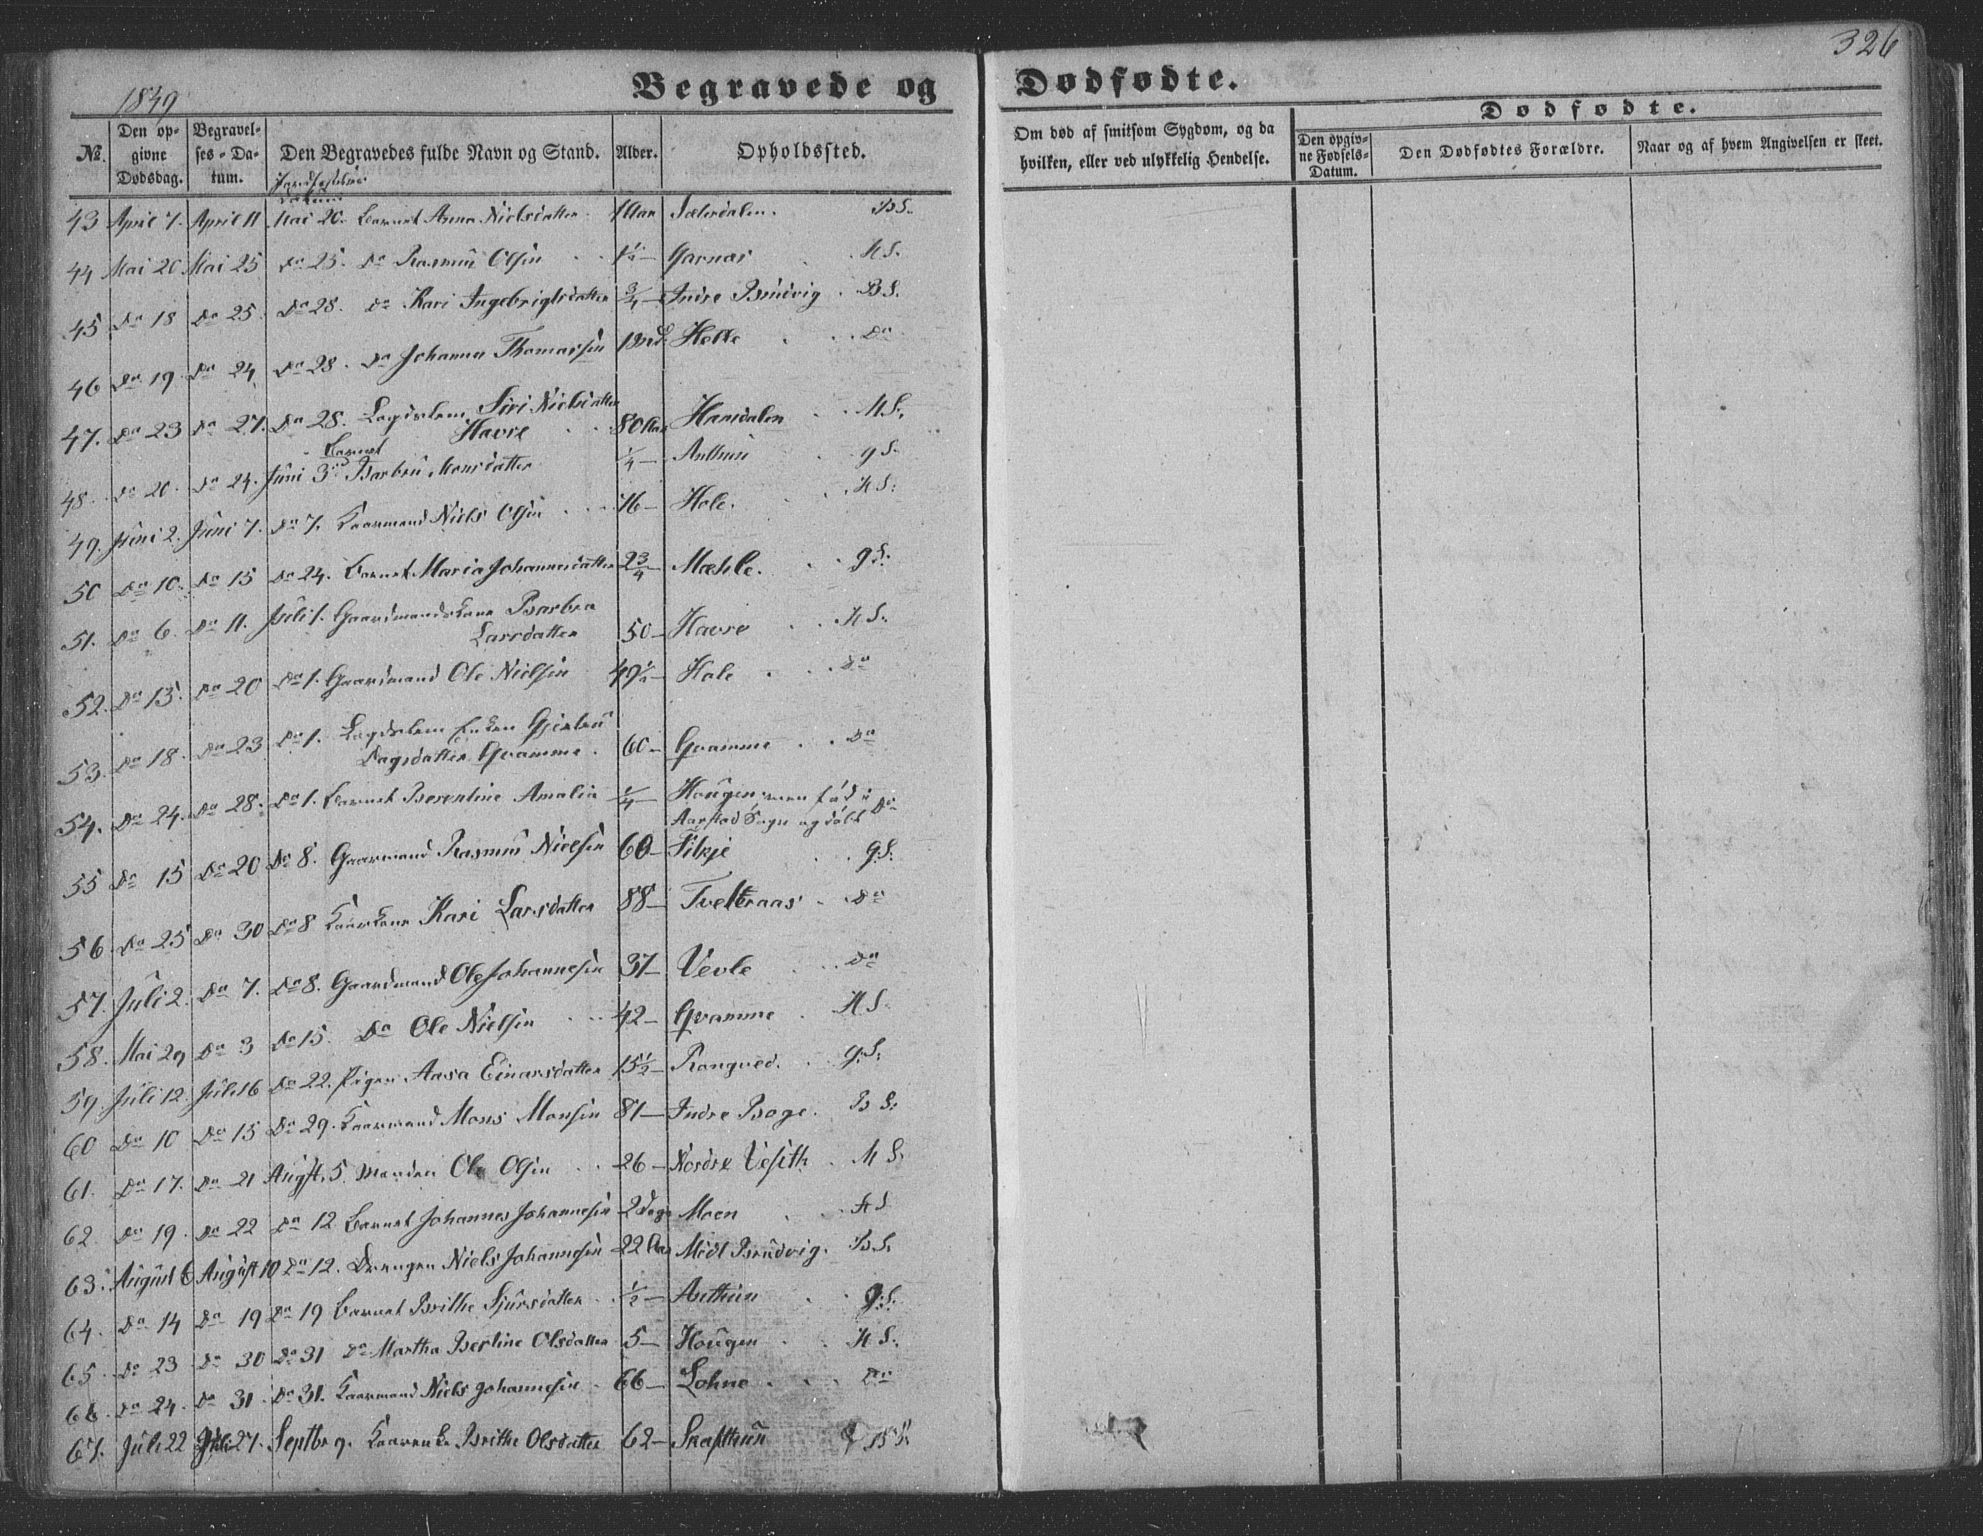 326
1849
Begravede og Dødfødte.
Dødfødte.
No. Den opgivne Dødsdag. Begravelses-Datum. Den Begravedes fulde Navn og Stand. Alder. Opholdssted. Om død af smitsom Sygdom, og da hvilken, eller ved ulykkelig Hendelse. Den opgivne Fødsels-Datum. Den Dødfødtes Forældre. Naar og af hvem Angivelsen er skeet.
43 April 7. April 11 Mai 20. Barnet Anna Nielsdatter 1 Aar Sæterdalen. B S.
44 Mai 20 Mai 25 Do 25. Do Rasmus Olsen 1½ — Garnæs H S.
45 Do 18 Do 25. Do 28. Do Kari Ingebrigtsdatter ¾ — Indre Bruvig B S.
46 Do 19. Do 24 Do 28. Do Johannes Thomassen Helle Do
47. Do 23 Do 27. Do 28. Lægdslem Siri Nielsdatter
Havre 80 Aar Hansdalen H S.
48. Do 20. Do 24. Juni 3 Barnet Barbru Monsdatter ¼ — Anthun g S.
49. Juni 2. Juni 7. Do 7. Kaarmand Niels Olsen 76 — Hole. H S.
50 Do 10. Do 15 Do 24. Barnet Maria Johannesdatter 2¾ — Mæhle. g S.
51. Do 6. Do 11. Juli 1. Gaardmandskone Barbra
Larsdatter 50 — Havre H S.
52. Do 13. Do 20 Do 1. Gaardmand Ole Nielsen 49½ — Hole Do
53. Do 18. Do 23 Do 1. Lægdslem Enken Gjertru
Dagsdatter Gvamme. 60 — Gvamme Do
54. Do 24. Do 28. Do 1. Barnet Berentine Amalia ¼ — Hougen men fød i
Aarstad Sogn og døbt Do
55 Do 15 Do 20 Do 8. Gaarmand Rasmus Nielsen 60 — Tilkje g S.
56. Do 25 Do 30 Do 8 Kaarkone Kari Larsdatter 88 — Tvetteraas Do
57. Juli 2. Do 7. Do 8. Gaardmand Ole Johannesen 37 — Vevle Do
58. Mai 29 Do 3 Do 15. Do Ole Nielsen 42 — Gvamme H S.
59 Juli 12. Juli 16 Do 22. Pigen Aasa Einarsdatter 15½ — Rongved. g S.
60 Do 10 Do 15 Do 29. Kaarmand Mons Monsen 81 — Indre Boge. B S.
61. Do 17. Do 21 August 5. Manden Ole Olsen 26 — Nordre Vesith H S.
62. Do 19. Do 22 Do 12 Barnet Johannes Johannesen 2 Dage Moen H S
63. August 6 August 10 Do 12. Drengen Niels Johannesen 22 Aar Midt Bruvig. B S.
64. Do 14 Do 19 Do 19 Barnet Brithe Sjursdatter ½ — Anthun g S.
65. Do 23 Do 30 Do 31 Do Martha Bertine Olsdatter 5 — Hougen H S.
66. Do 24. Do 31. Do 31. Kaarmand Niels Johannesen 66 — Lohne Do
67. Juli 22 Juli 27. Septbr 9. Brithe Olsdatter 62 — Skafthun B S.